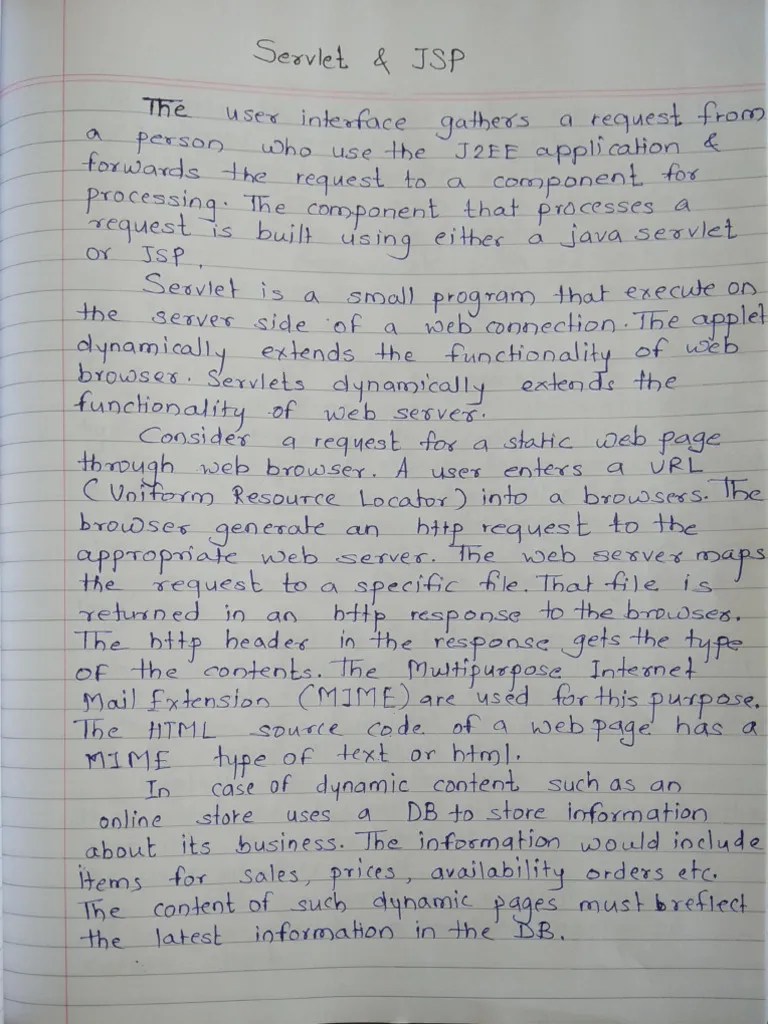 Servlet & JSP
The user interface gathers a request from
a person who use the J2EE application &
forwards the request to a component for
processing. The component that processes a
request is built using either a java servlet
or JSP.
Servlet is a small program that execute on
the server side of a web connection. The applet
dynamically extends the functionality of web
browser. Servlets dynamically extends the
functionality of web server.
Consider a request for a static web page
through web browser. A user enters a URL
(Uniform Resource Locator) into a browsers. The
browser generate an http request to the
appropriate web server. The web server maps
the request to a specific file. That file is
returned in an http response to the browser.
The http header in the response gets the type
of the contents. The Multipurpose Internet
Mail Extension (MIME) are used for this purpose.
The HTML source code of a web page has a
MIME type of text or html.
In case of dynamic content such as an
online store uses a DB to store information
about its business. The information would include
items for sales, prices, availability orders etc.
The content of such dynamic pages must reflect
the latest information in the DB.